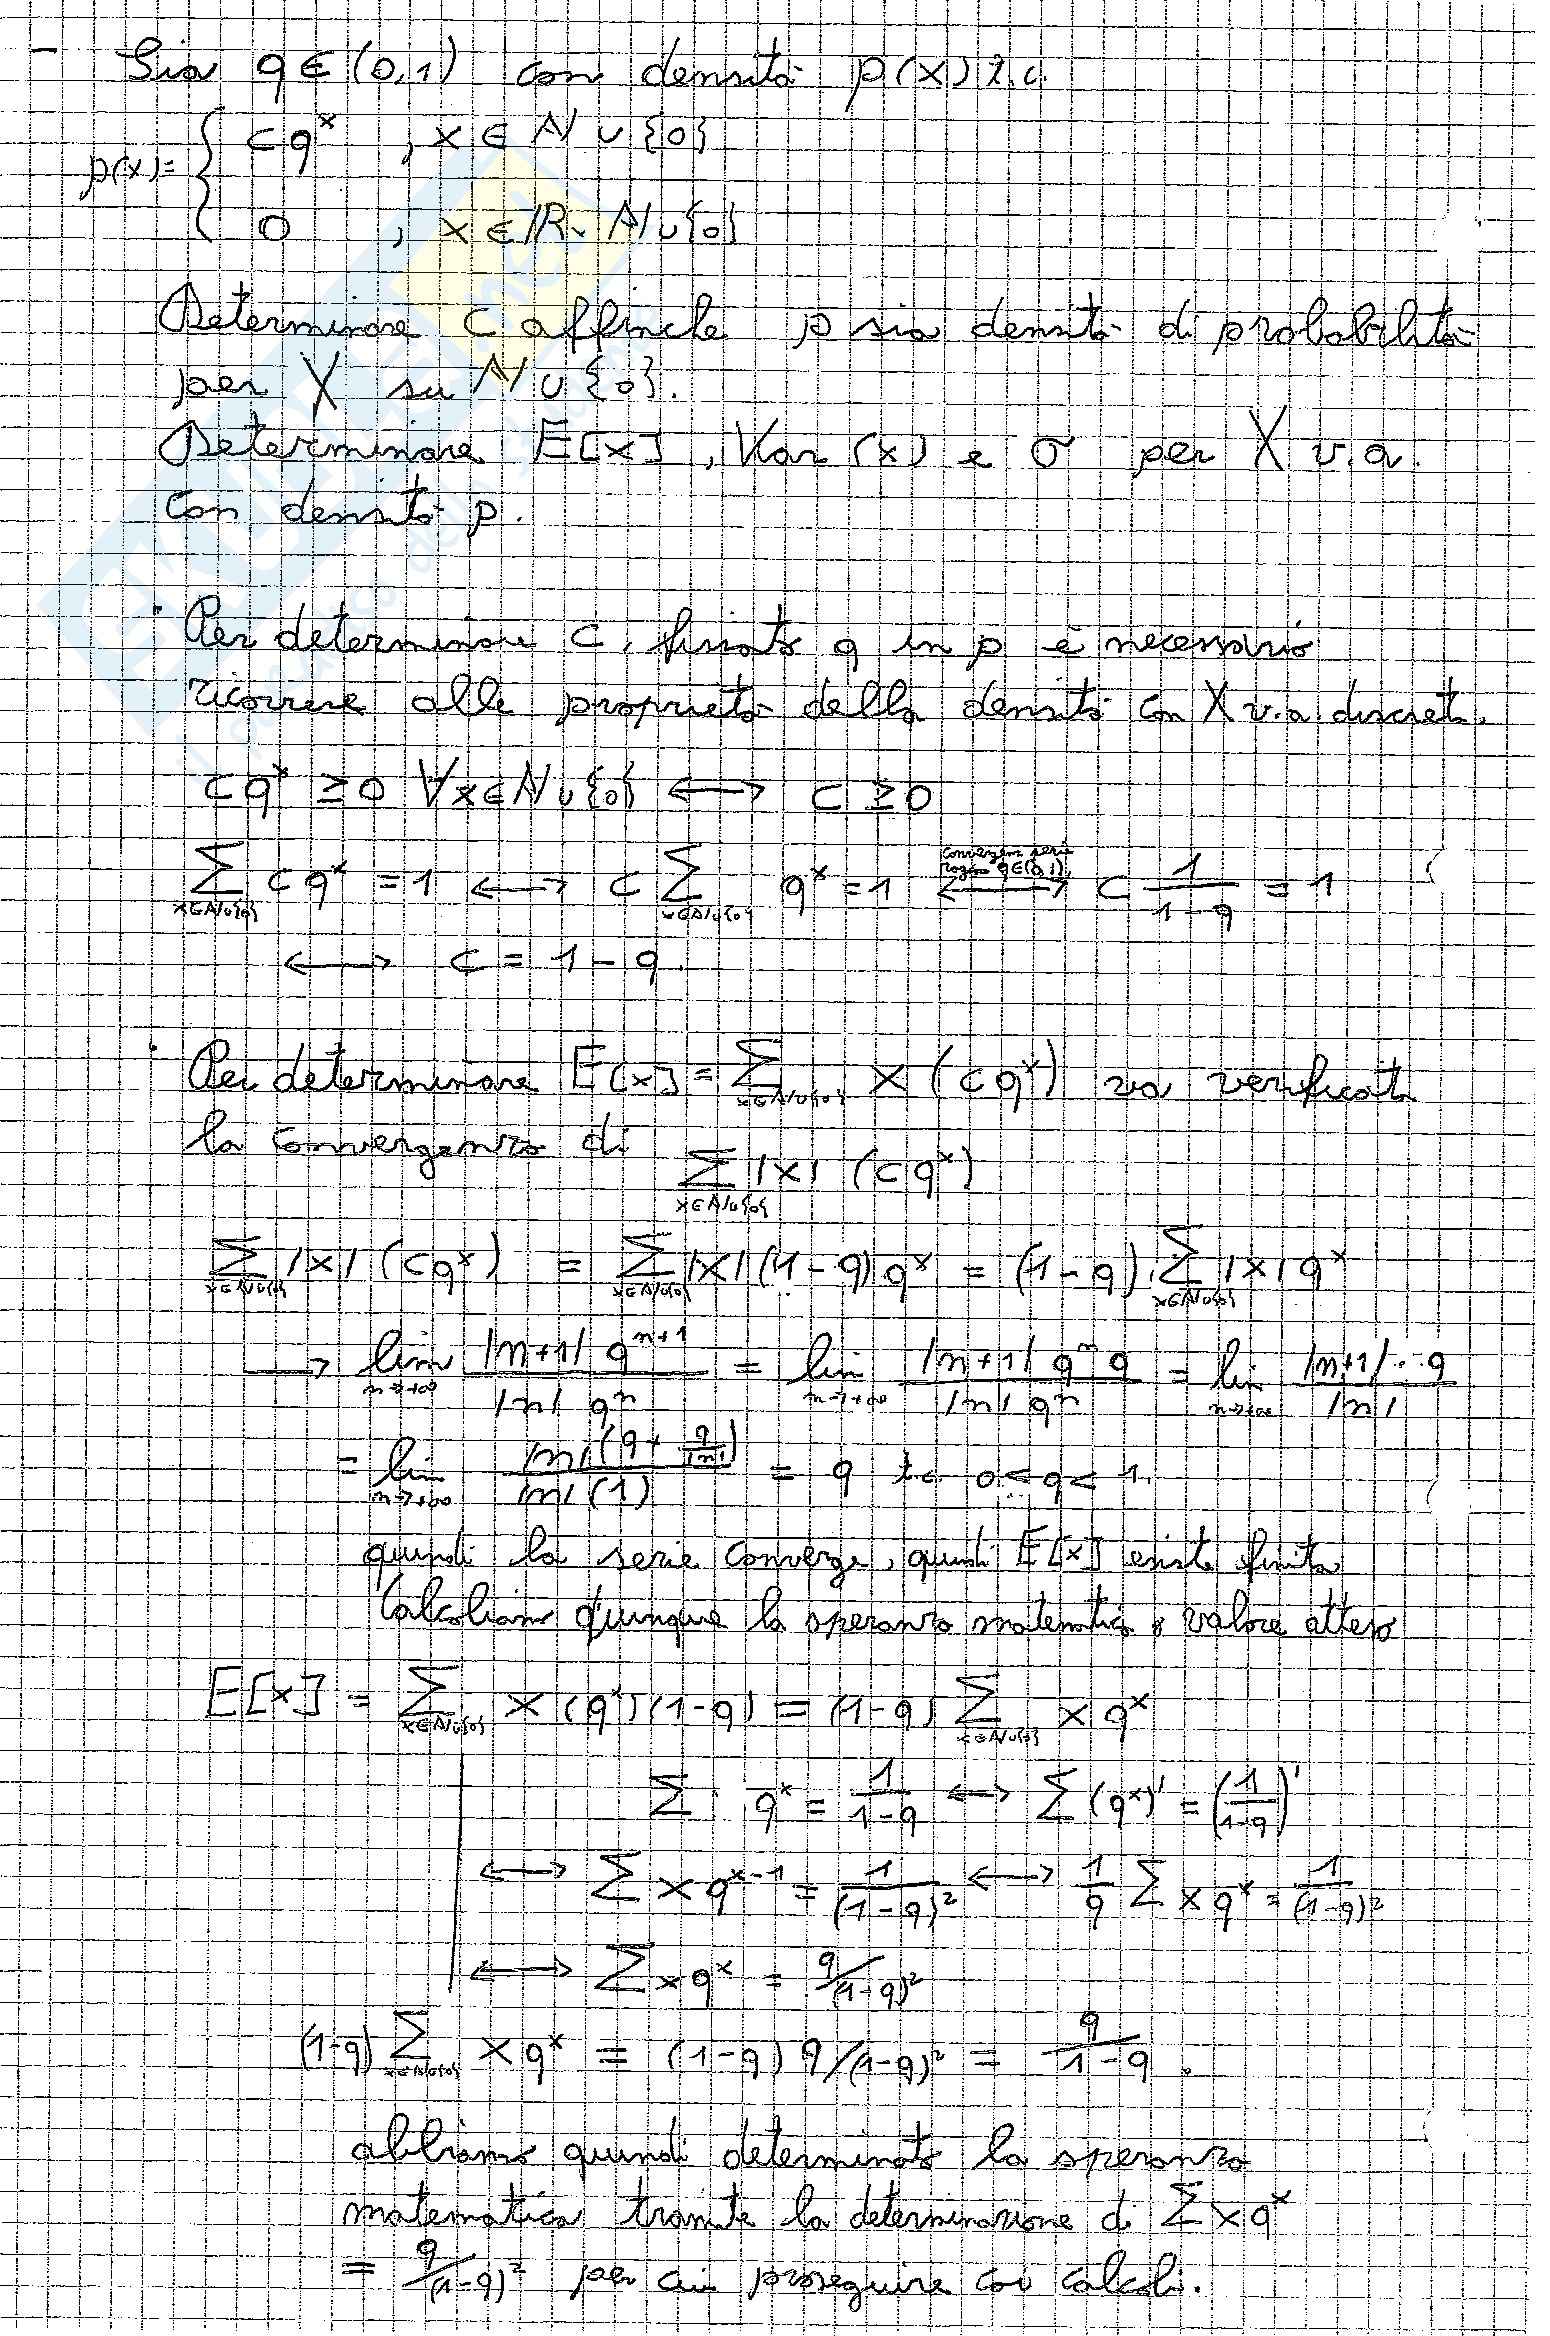 - Sia q ∈ (0,1) con densità p(x) t.c.
p(x) = { c q^x , x ∈ ℕ ∪ {0}
0 , x ∈ ℝ \ ℕ ∪ {0}
Determinare c affinché p sia densità di probabilità
per X su ℕ ∪ {0}.
Determinare E[x], Var(x) e σ per X v.a.
con densità p.
· Per determinare c, fissato q in p è necessario
ricorrere alle proprietà della densità con X v.a. discreta.
c q^x ≥ 0 ∀x ∈ ℕ ∪ {0} ⟷ c ≥ 0
∑_{x∈ℕ∪{0}} c q^x = 1 ⟷ c ∑_{x∈ℕ∪{0}} q^x = 1 ⟷ (serie q∈(0,1)) c 1/(1-q) = 1
⟷ c = 1 - q.
· Per determinare E[x] = ∑_{x∈ℕ∪{0}} x (c q^x) va verificata
la convergenza di ∑_{x∈ℕ∪{0}} |x| (c q^x)
∑_{x∈ℕ∪{0}} |x| (c q^x) = ∑_{x∈ℕ∪{0}} |x| (1-q) q^x = (1-q) ∑_{x∈ℕ∪{0}} |x| q^x
⟶ lim_{n→+∞} |n+1| q^{n+1} / |n| q^n = lim_{n→+∞} |n+1| q^n q / |n| q^n = lim_{n→+∞} |n+1| · q / |n|
= lim_{n→+∞} |n| (q + q/|n|) / |n| (1) = q t.c. 0 < q < 1.
quindi la serie converge, quindi E[x] esiste finita
Calcoliamo dunque la speranza matematica o valore atteso
E[x] = ∑_{x∈ℕ∪{0}} x (q^x) (1-q) = (1-q) ∑_{x∈ℕ∪{0}} x q^x
∑ q^x = 1/(1-q) ⟷ ∑ (q^x)' = (1/(1-q))'
⟷ ∑ x q^{x-1} = 1/(1-q)² ⟷ 1/q ∑ x q^x = 1/(1-q)²
⟷ ∑ x q^x = q/(1-q)²
(1-q) ∑_{x∈ℕ∪{0}} x q^x = (1-q) q/(1-q)² = q/(1-q).
abbiamo quindi determinato la speranza
matematica tramite la determinazione di ∑ x q^x
= q/(1-q)² per cui proseguire coi calcoli.